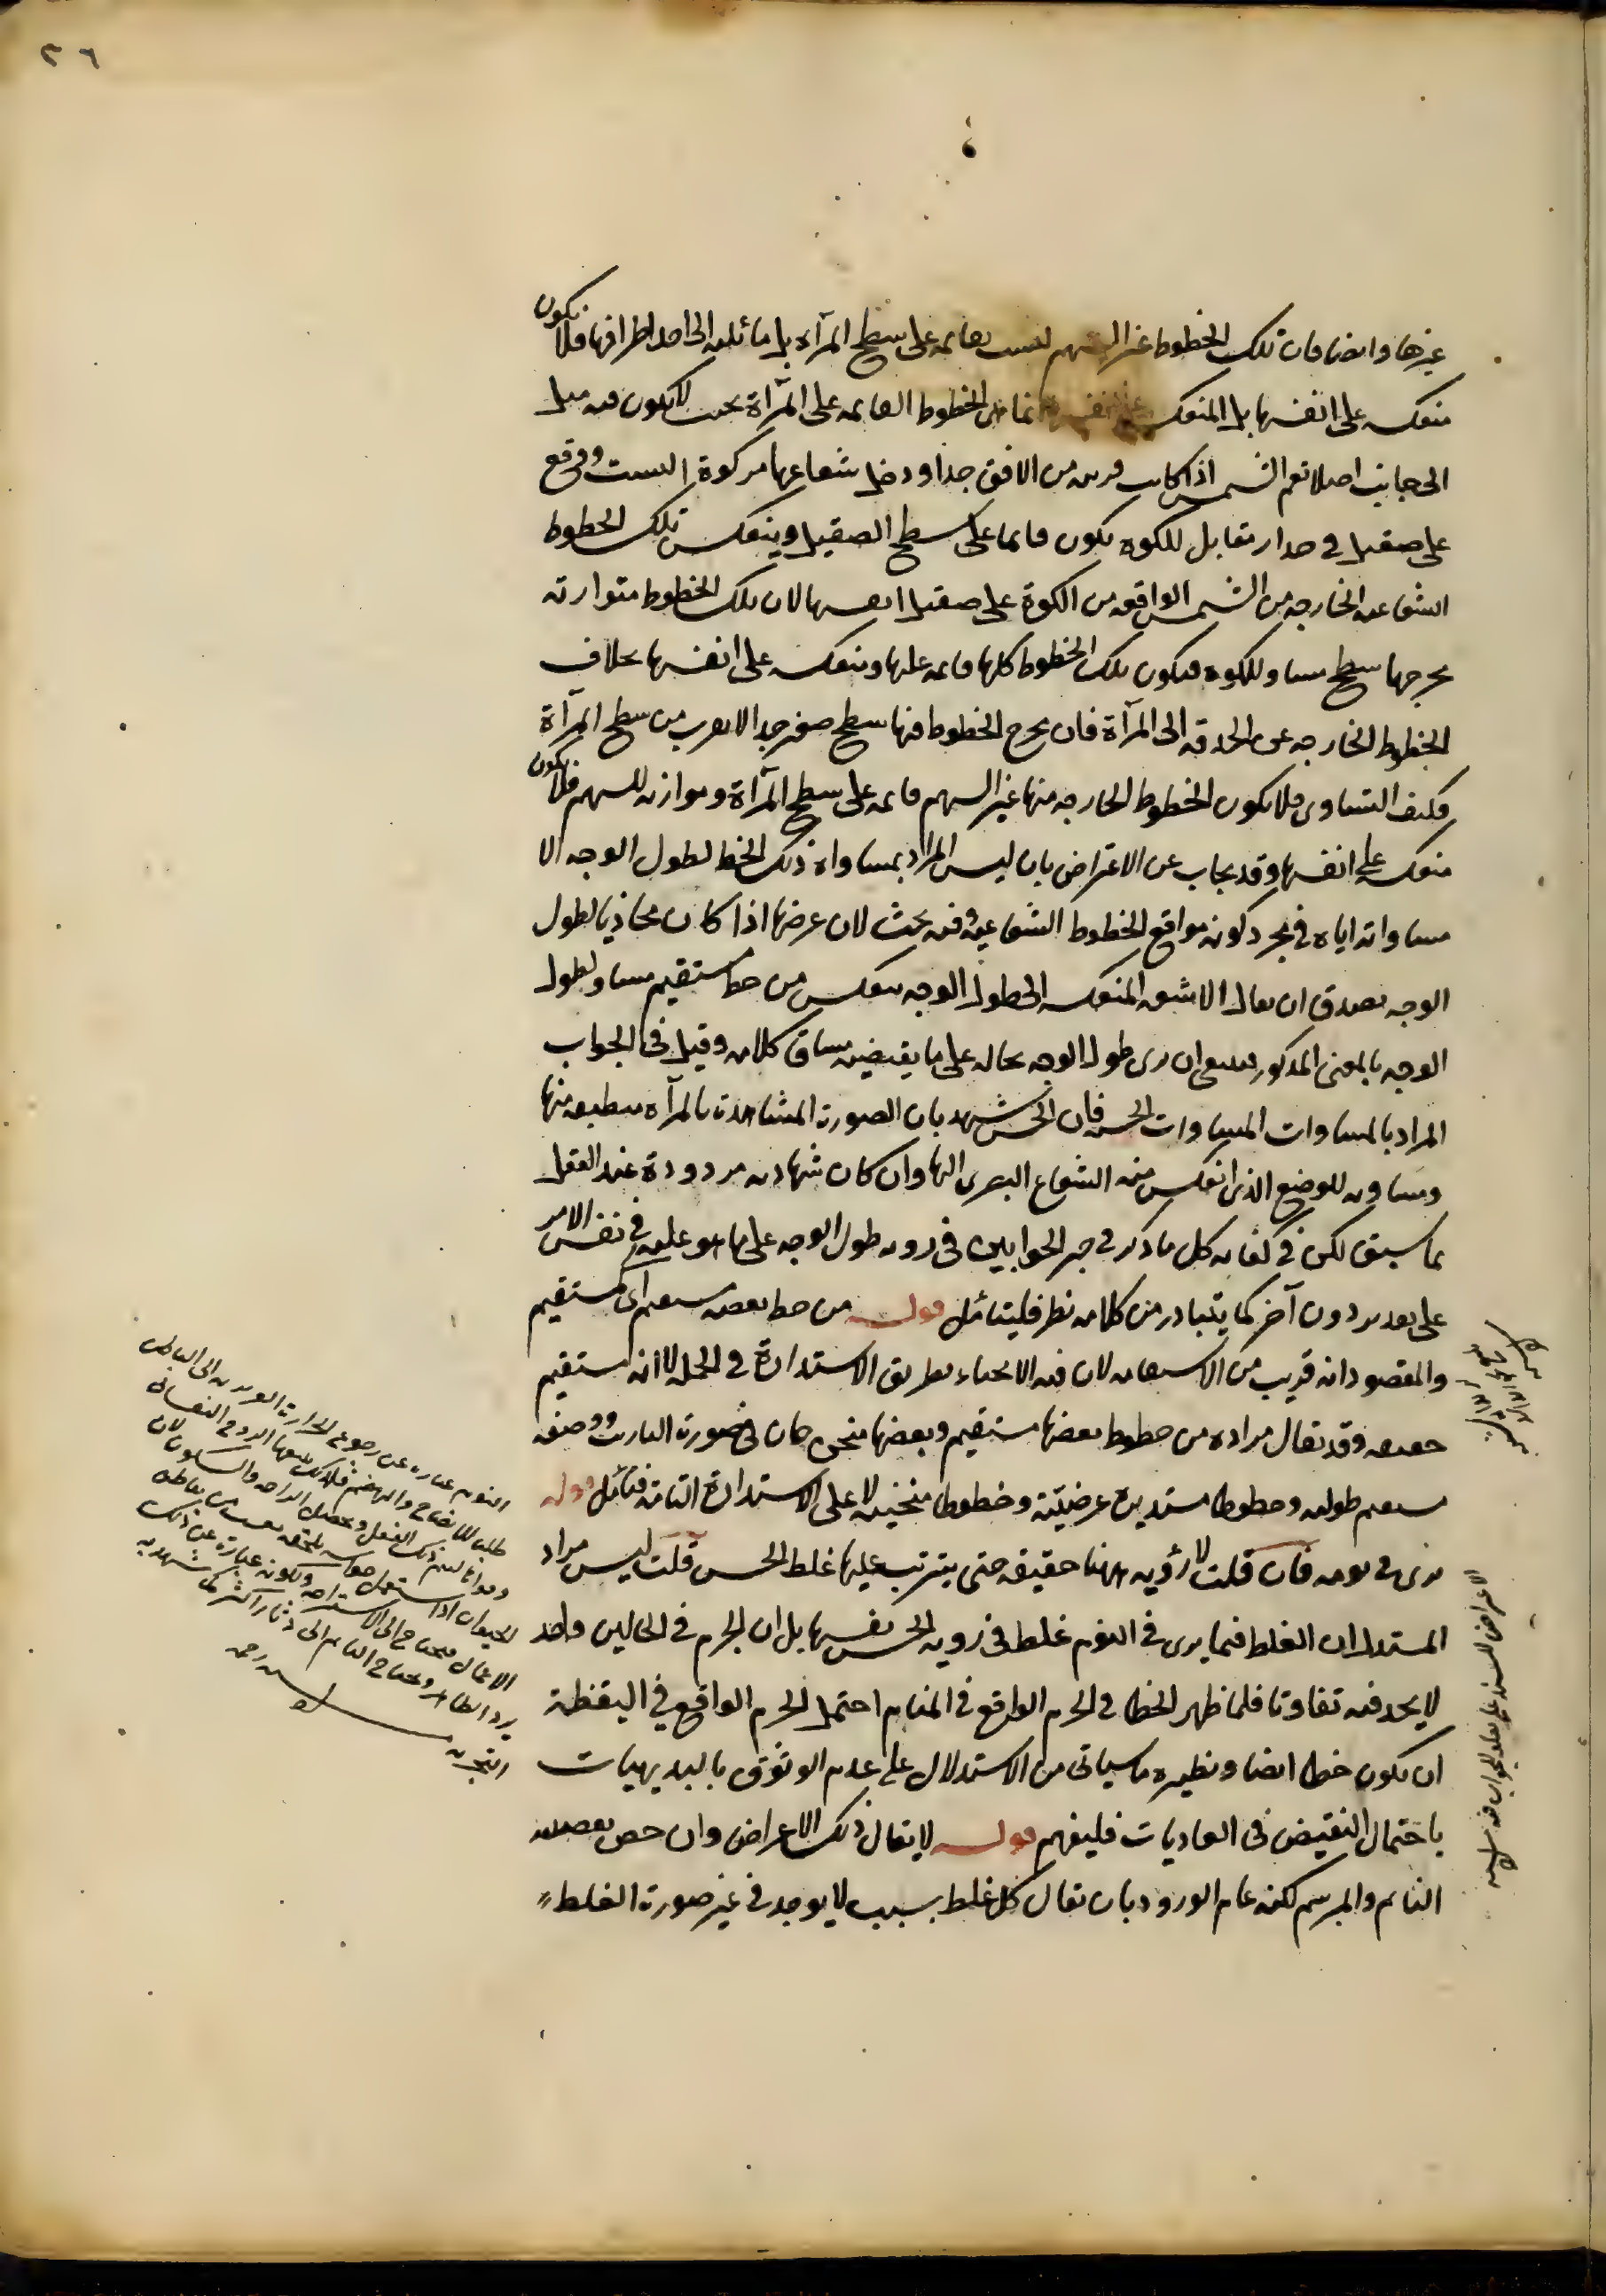 ٣٦
غيرها وايضا فان تلك الخطوط غير السهم ليست بقائمه على سطح المرآه بل مائله الى احد اطرافها فلا تكون
منعكسه على انفسها بل المنعكسه على نفسها انما هى الخطوط القائمه على المرآة بحيث لا يكون فيه ميل
الى جانب اصلا نعم الشمس اذا كانت قريبه من الافق جدا ودخل شعاعها من كوة البيت ووقع
على صقيل فى جدار مقابل للكوه يكون قائما على سطح الصقيل وينعكس تلك الخطوط
الشعاعيه الخارجه من الشمس الواقعه من الكوة على صقيل انفسها لان تلك الخطوط متوازيه
مخرجها سطح مساو للكوه فيكون تلك الخطوط كلها قائمه عليها ومنعكسه على انفسها بخلاف
الخطوط الخارجه عن الحدقه الى المرآة فان مخرج الخطوط فيها سطح صغير جدا لا يقرب من سطح المرآة
فكيف التساوى فلا يكون الخطوط الخارجه منها غير السهم قائمه على سطح المرآة وموازيه للسهم فلا يكون
منعكسه على انفسها وقد يجاب عن الاعتراض بان ليس المراد بمساواة ذلك الخط لطول الوجه الا
مساواته اياه فى مجرد كونه مواقع الخطوط الشعاعية وفيه بحث لان عرضها اذا كان محاذيا لطول
الوجه يصدق ان يقال الاشعه المنعكسه الى طول الوجه ينعكس من خط مستقيم مساو لطول
الوجه بالمعنى المذكور فينبغى ان يرى طول الوجه بحاله على ما يقتضيه مساق كلامه وقيل فى الجواب
المراد بالمساوات المساوات الحسيه فان الحس يشهد بان الصورة المشاهدة بالمرآه منطبعه فيها
ومساويه للوضع الذى انعكس منه الشعاع البصرى اليها وان كان شهادته مردودة عند العقل
بما سبق لكن فى كفايه كل ما ذكر فى حيز الجوابين فى رويه طول الوجه على ما هو عليه فى نفس الامر
على تقدير دون آخر كما يتبادر من كلامه نظر فليتأمل قوله من خط بعضه مستقيم اى مستقيم
والمقصود انه قريب من الاستقامه لان فيه الانحناء بطريق الاستدارة فى الجمله لا انه مستقيم
حقيقه وقد يقال مراده من خطوط بعضها مستقيم وبعضها منحن فان فى صورة
مستقيم طوليه وخطوط مستديرة عرضيّة وخطوطا منحنيه لا على الاستدارة التامّة فتأمّل قوله
يرى فى نومه فان قلت لا رؤيه ههنا حقيقه حتى يترتب عليها غلط الحس قلت ليس مراد
المستدل ان الغلط فيما يرى فى النوم غلط فى رويه الحس نفسها بل ان الجزم فى الحالين واحد
لا يجد فيه تفاوتا فلما ظهر الخطا فى الجزم الواقع فى المنام احتمل الجزم الواقع فى اليقظة
ان يكون خطا ايضا ونظيره ما سياتى من الاستدلال على عدم الوثوق بالبديهيات
باحتمال النقيض فى العاديات فليفهم قوله لا يقال ذلك الاعراض وان خص بعضه
النائم والمبرسم لكنه عام الورود بان يقال كل غلط بسبب لا يوجد فى غير صورة الغلط
النوم عباره عن رجوع الحرارة الغريزيه الى الباطن
طلبا للانضاج والهضم